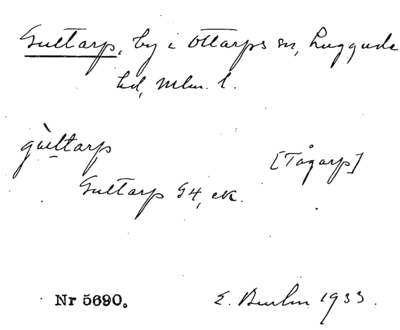 Gultarp, by i Ottarps sn, Luggude
hd, Mlm. l.
gùltarp [Tågarp]
Gultarp S4, ek.
Nr 5690. E. 1933.